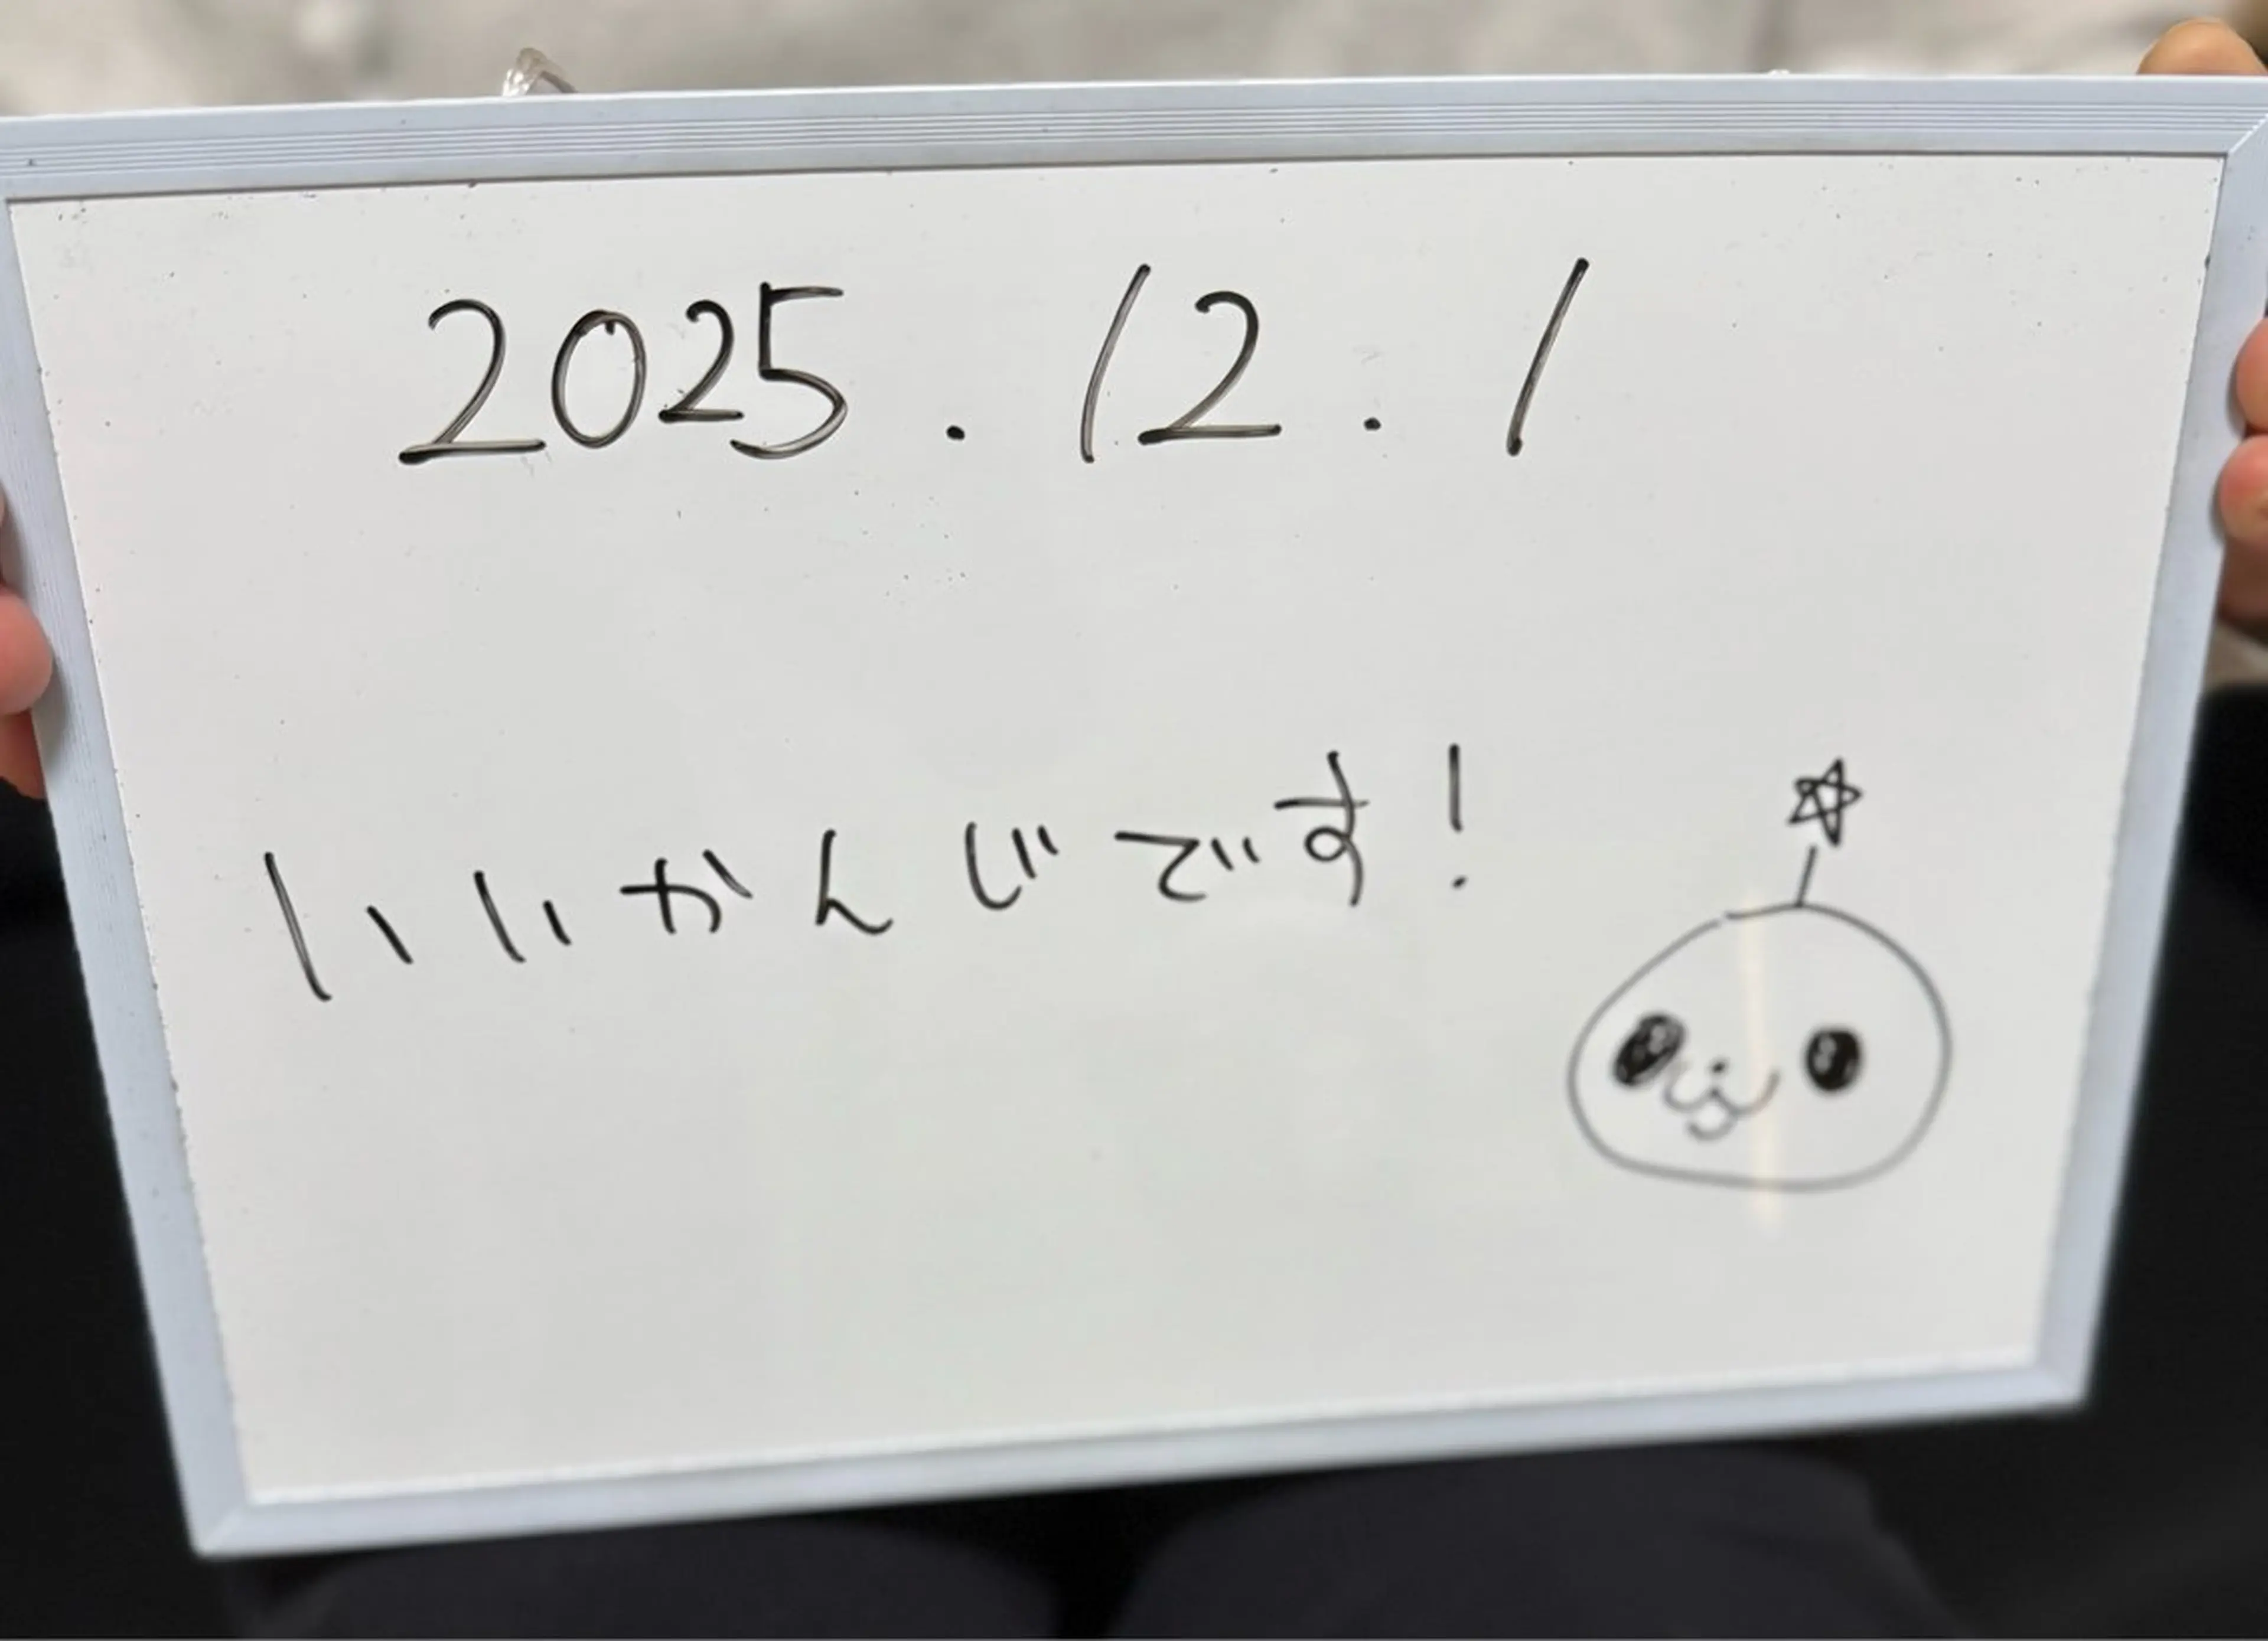 2025.12.1
いいかんじです!